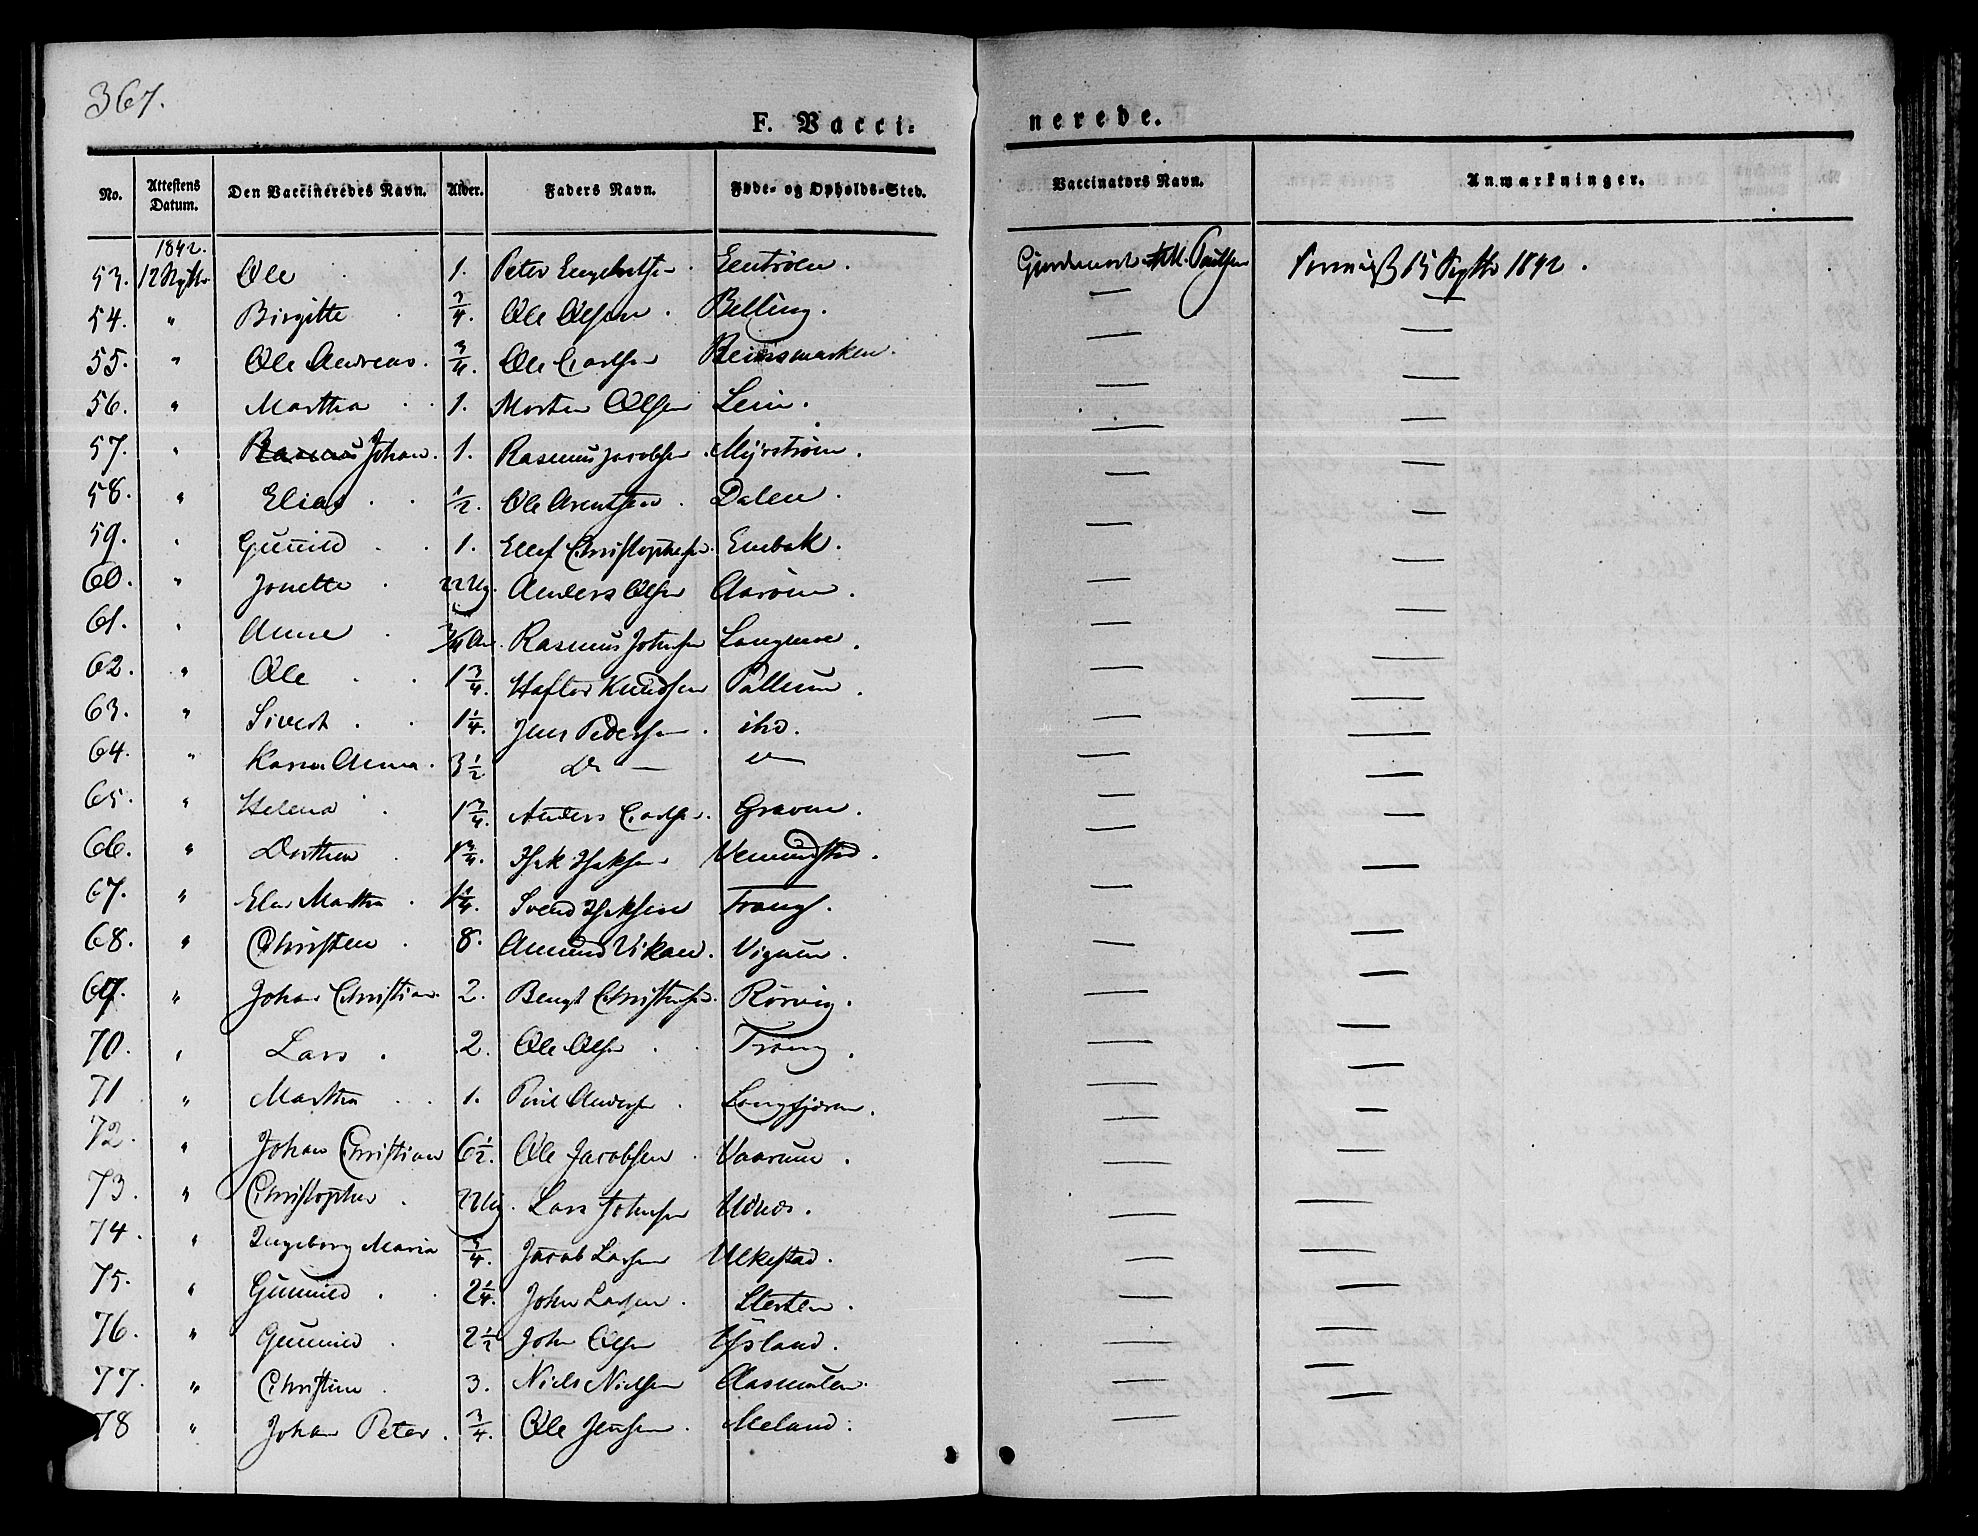 367.
F. Vacci- nerede.
No. Attestens Datum. Den Vaccineredes Navn. Alder. Faders Navn. Føde- og Opholds-Sted. Vaccinators Navn. Anmærkninger.
1842.
53. 12 Septbr Ole 1. Peter Engebretsen Eentrøen. Gjordemoder Poulsen 15 Septbr 1842.
54. " Birgitte 3/4. Ole Olsen. Belling. — —
55. " Ole Andreas. 3/4. Ole Carlsen Reinsmarken. — —
56. " Martha 1. Morten Olsen Lein. — —
57. " Rasmus Johan. 1. Rasmus Jacobsen. Myrstrøen. — —
58. " Elias 1/2. Ole Arentsen. Dalen. — —
59. " Gunild 1. Ellef Christophersen. Embak. — —
60. " Jonette 22 Ug. Anders Olsen Aarøen. — —
61. " Anne 3/4 Aar. Rasmus Johnsen — —
62. " Ole 1 3/4. Haftor Knudsen — —
63. " Sivert. 1 1/4. Jens Pedersen. ibd. — —
64. " Karen Anna. 3 1/2 Do — — — —
65. " Helena 1 3/4. Anders Carlsen. Graven. — —
66. " Dorthea 1 3/4. Isak Isaksen Vemundstad. — —
67. " Elen Martha. 1 1/4. Svend Isaksen — —
68. " Christen 8. Amund Vikan. — —
69. " Johan Christian. 2. Bengt Christensen. Rørvig. — —
70. " Lars. 2. Ole Olsen — —
71 " Martha 1. Poul Andersen. Longfjæren. — —
72. " Johan Christian 6 1/2. Ole Jacobsen. Vaarum. — —
73. " Christopher. 22 Ug. Lars Johnsen — —
74. " Ingeborg Maria 3/4. Jacob Larsen Ulkestad. — —
75. " Gunnild. 2 1/4. John Larsen. Sterten. — —
76. " Gunnild. 2 1/2 John Olsen Ysland. — —
77. " Christine. 3. Niels Nielsen Aasmulen. — —
78 " Johan Peter. 3/4. Ole Jensen. Meland. —